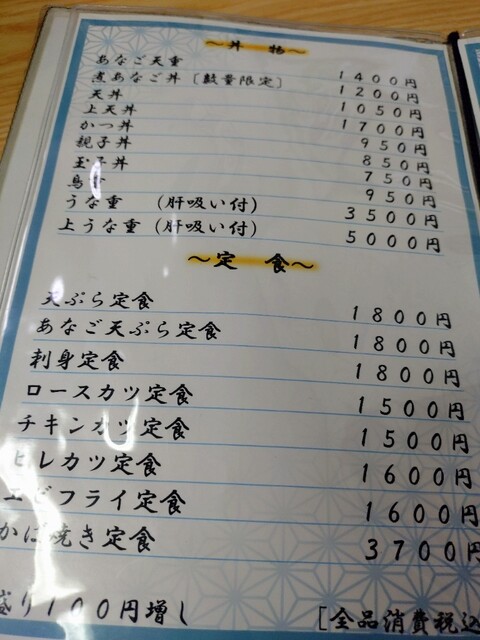 ～丼　物～
あなご天重　1400円
煮あなご丼〔数量限定〕　1200円
天丼　1050円
上天丼　1700円
かつ丼　950円
親子丼　850円
玉子丼　750円
鳥重　950円
うな重　(肝吸い付)　3500円
上うな重　(肝吸い付)　5000円
～定　食～
天ぷら定食　1800円
あなご天ぷら定食　1800円
刺身定食　1800円
ロースカツ定食　1500円
チキンカツ定食　1500円
ヒレカツ定食　1600円
エビフライ定食　1600円
かば焼き定食　3700円
盛り100円増し　[全品消費税込